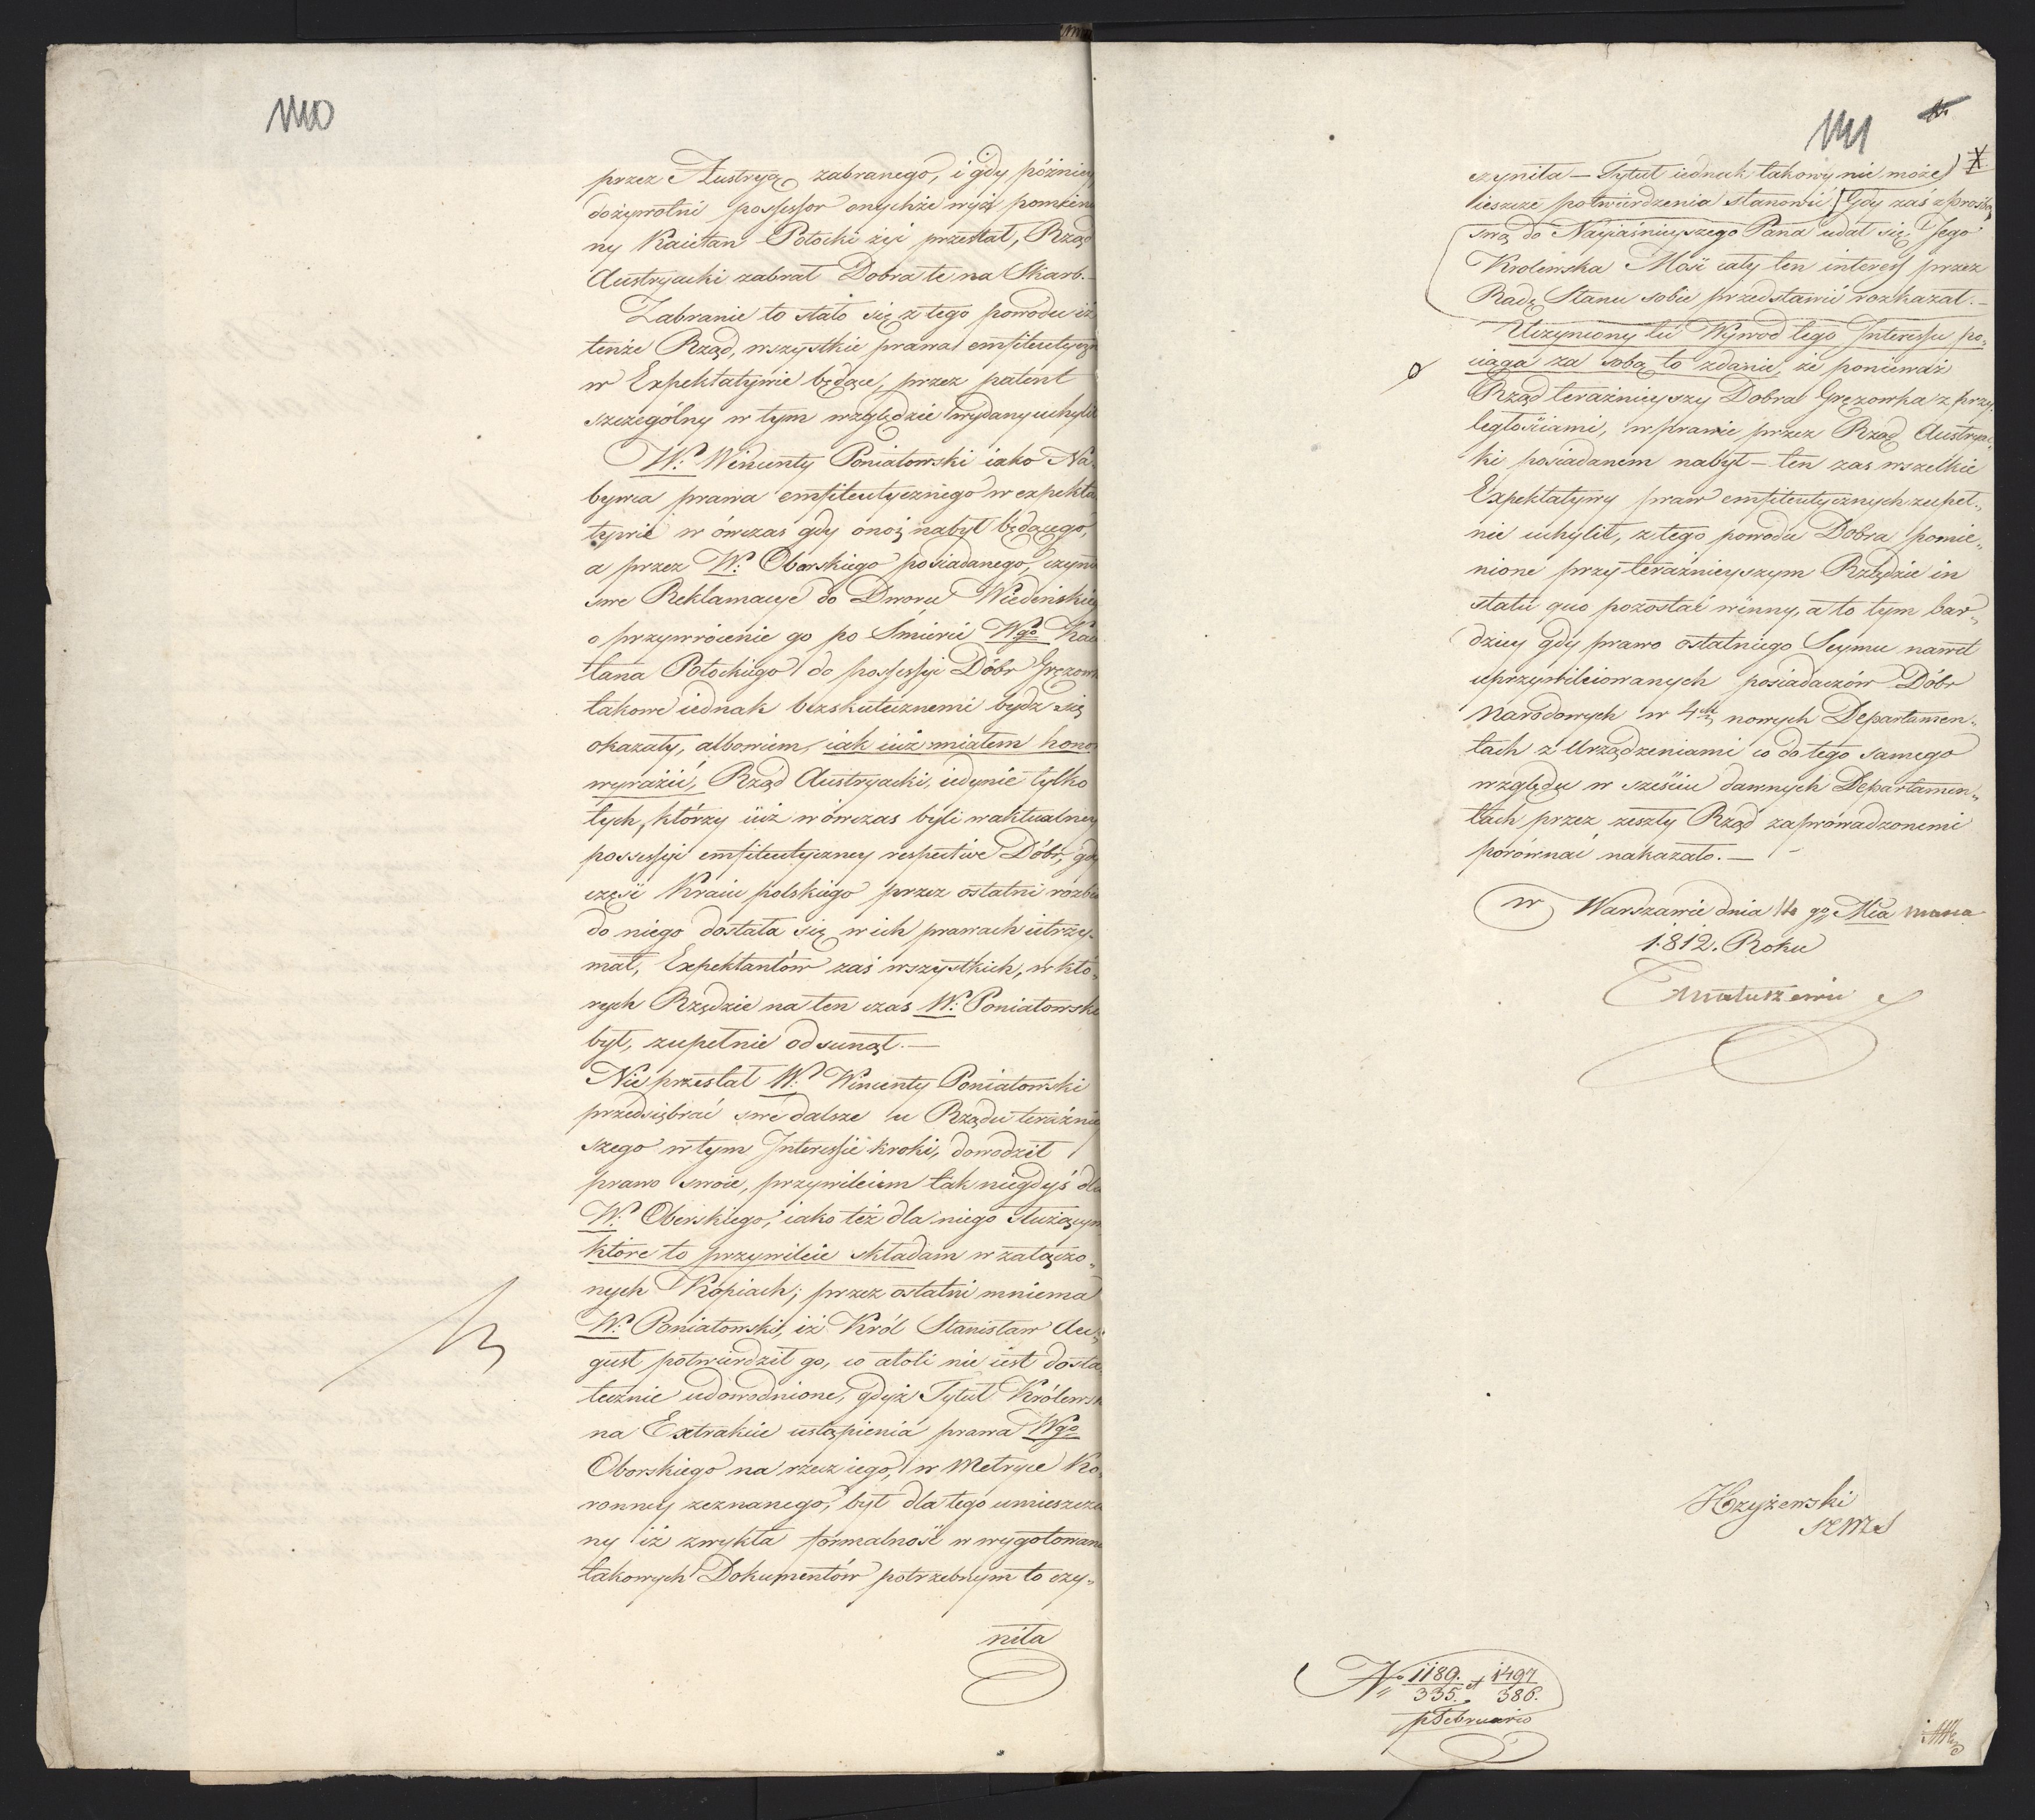 1110
przez Austryą zabranego, i gdy późniey
dożywotni possessor onychże wyż pomienio
ny Kaietan Potocki żyć przestał, Rząd
Austryacki zabrał Dobra te na Skarb.—
Zabranie to stało się z tego powodu iż
tenże Rząd, wszystkie prawa emfiteutyczn
w Expektatywie będące, przez patent
szczególny w tym względzie wydany uchylił
W. Wincenty Poniatowski iako Na
bywca prawa emfiteutycznego w expekta
tywie w ówczas gdy onoż nabył będącego,
a przez W. Oborskiego posiadanego, czynił
swe Reklamacye do Dworu Wiedeńskieg
o przywrócenie go po Śmierci Wgo Kaie
tana Potockiego do possessyi Dóbr Gręzow
takowe iednak bezskutecznemi bydź się
okazały, albowiem, iak iuż miałem hono
wyrazić, Rząd Austryacki, iedynie tylko
tych, którzy iuż w ówczas byli w aktualney
possessyi emfiteutyczney respective Dóbr, gdy
część Kraiu polskiego przez ostatni rozbi
do niego dostała się w ich prawach utrzy-
mał, Expektantów zaś wszystkich, w któ-
rych Rzędzie na ten czas W. Poniatowski
był, zupełnie odsunął.—
Nie przestał W. Wincenty Poniatowski
przedsiębrać swe dalsze u Rządu teraźniey
szego w tym Interessie kroki, dowodził
prawo swoie, przywileiem tak niegdyś dla
W. Oberskiego, iako też dla niego służącym
które to przywileie składam w załączo„
nych Kopiach; przez ostatni mniema
W. Poniatowski, iż Król Stanisław Au„
gust potwierdził go, co atoli nie iest dosta
tecznie udowodnione, gdyż Tytuł Królewsk
na Extrakcie ustąpienia prawa Wgo
Oborskiego na rzecz iego, w Metryce Ko
ronney zeznanego, był dla tego umieszczo
ny iż zwykła formalność w wygotowani
takowych Dokumentów potrzebnym to czy„
niła
1111
czyniła — Tytuł iednak takowy nie może) X
ieszcze potwierdzenia stanowić [Gdy zaś z prośbą
swą do Nayiaśnieyszego Pana udał się, Jego
Krolewska Mość cały ten interess przez
Radę Stanu sobie przedstawić rozkazał.—
Uczyniony tu Wywod tego Interessu po„
ciąga za sobą to zdanie, że ponieważ
Rząd teraźnieyszy Dobra Gręzowka z przy„
ległościami, w prawie przez Rząd Austryac„
ki posiadanem nabył — ten zas wszelkie
Expektatywy praw emfiteutycznych zupeł„
nie uchylił, z tego powodu Dobra pomie„
nione przy teraźnieyszym Rzędzie in
statu quo pozostać winny, a to tym bar„
dziey gdy prawo ostatniego Seymu nawet
uprzywileiowanych posiadaczów Dóbr
Narodowych w 4ch nowych Departamen„
tach z Urządzeniami co do tego samego
względu w sześciu dawnych Departamen„
tach przez zeszły Rząd zaprowadzonemi
porównać nakazało.—
w Warszawie dnia 14 go Mca marca
1812. Roku
Matuszewic
Krzyżewski
N. 1189./335. et 1497/386.
p Februario